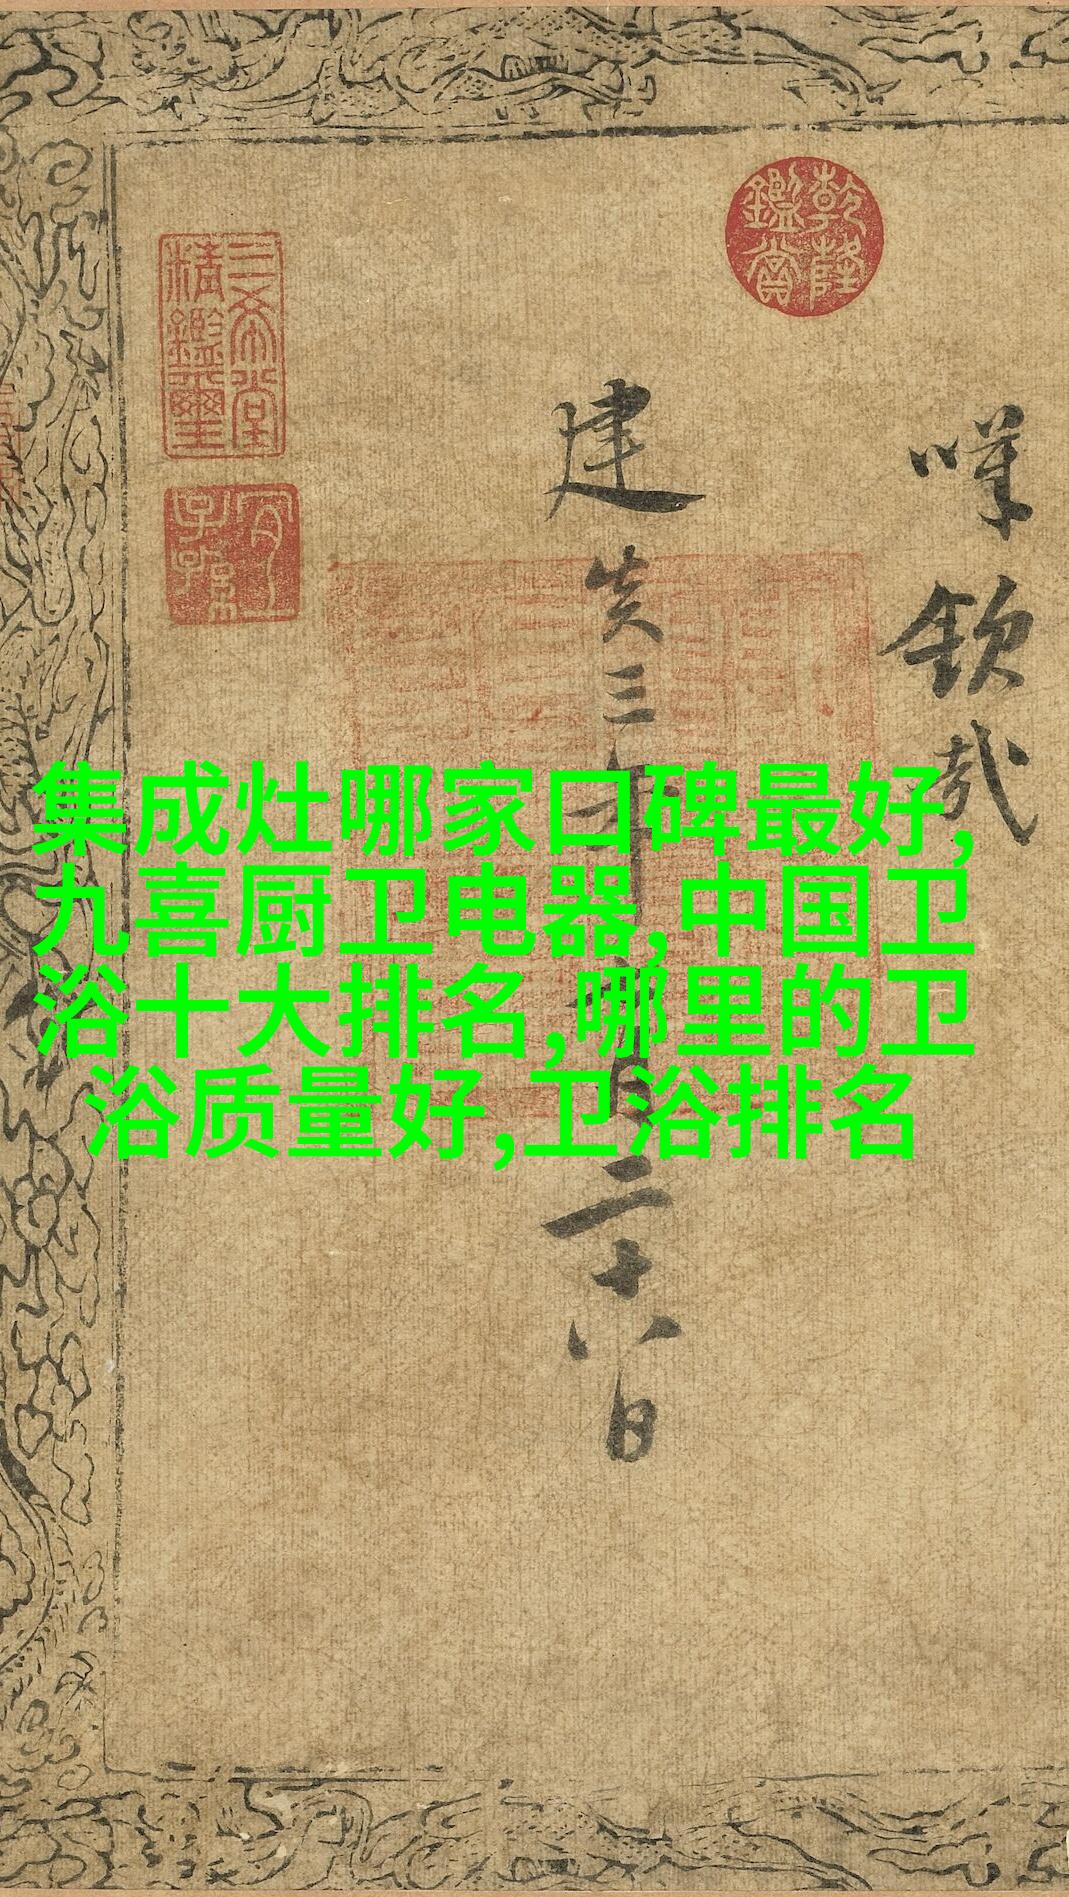 集成灶哪家口碑最好,
九喜厨卫电器,中国卫
浴十大排名,哪里的卫
浴质量好,卫浴排名
乾隆
鑑賞
三希堂
精鑑璽
宜
子孫
欽哉
建炎三年
二十八日